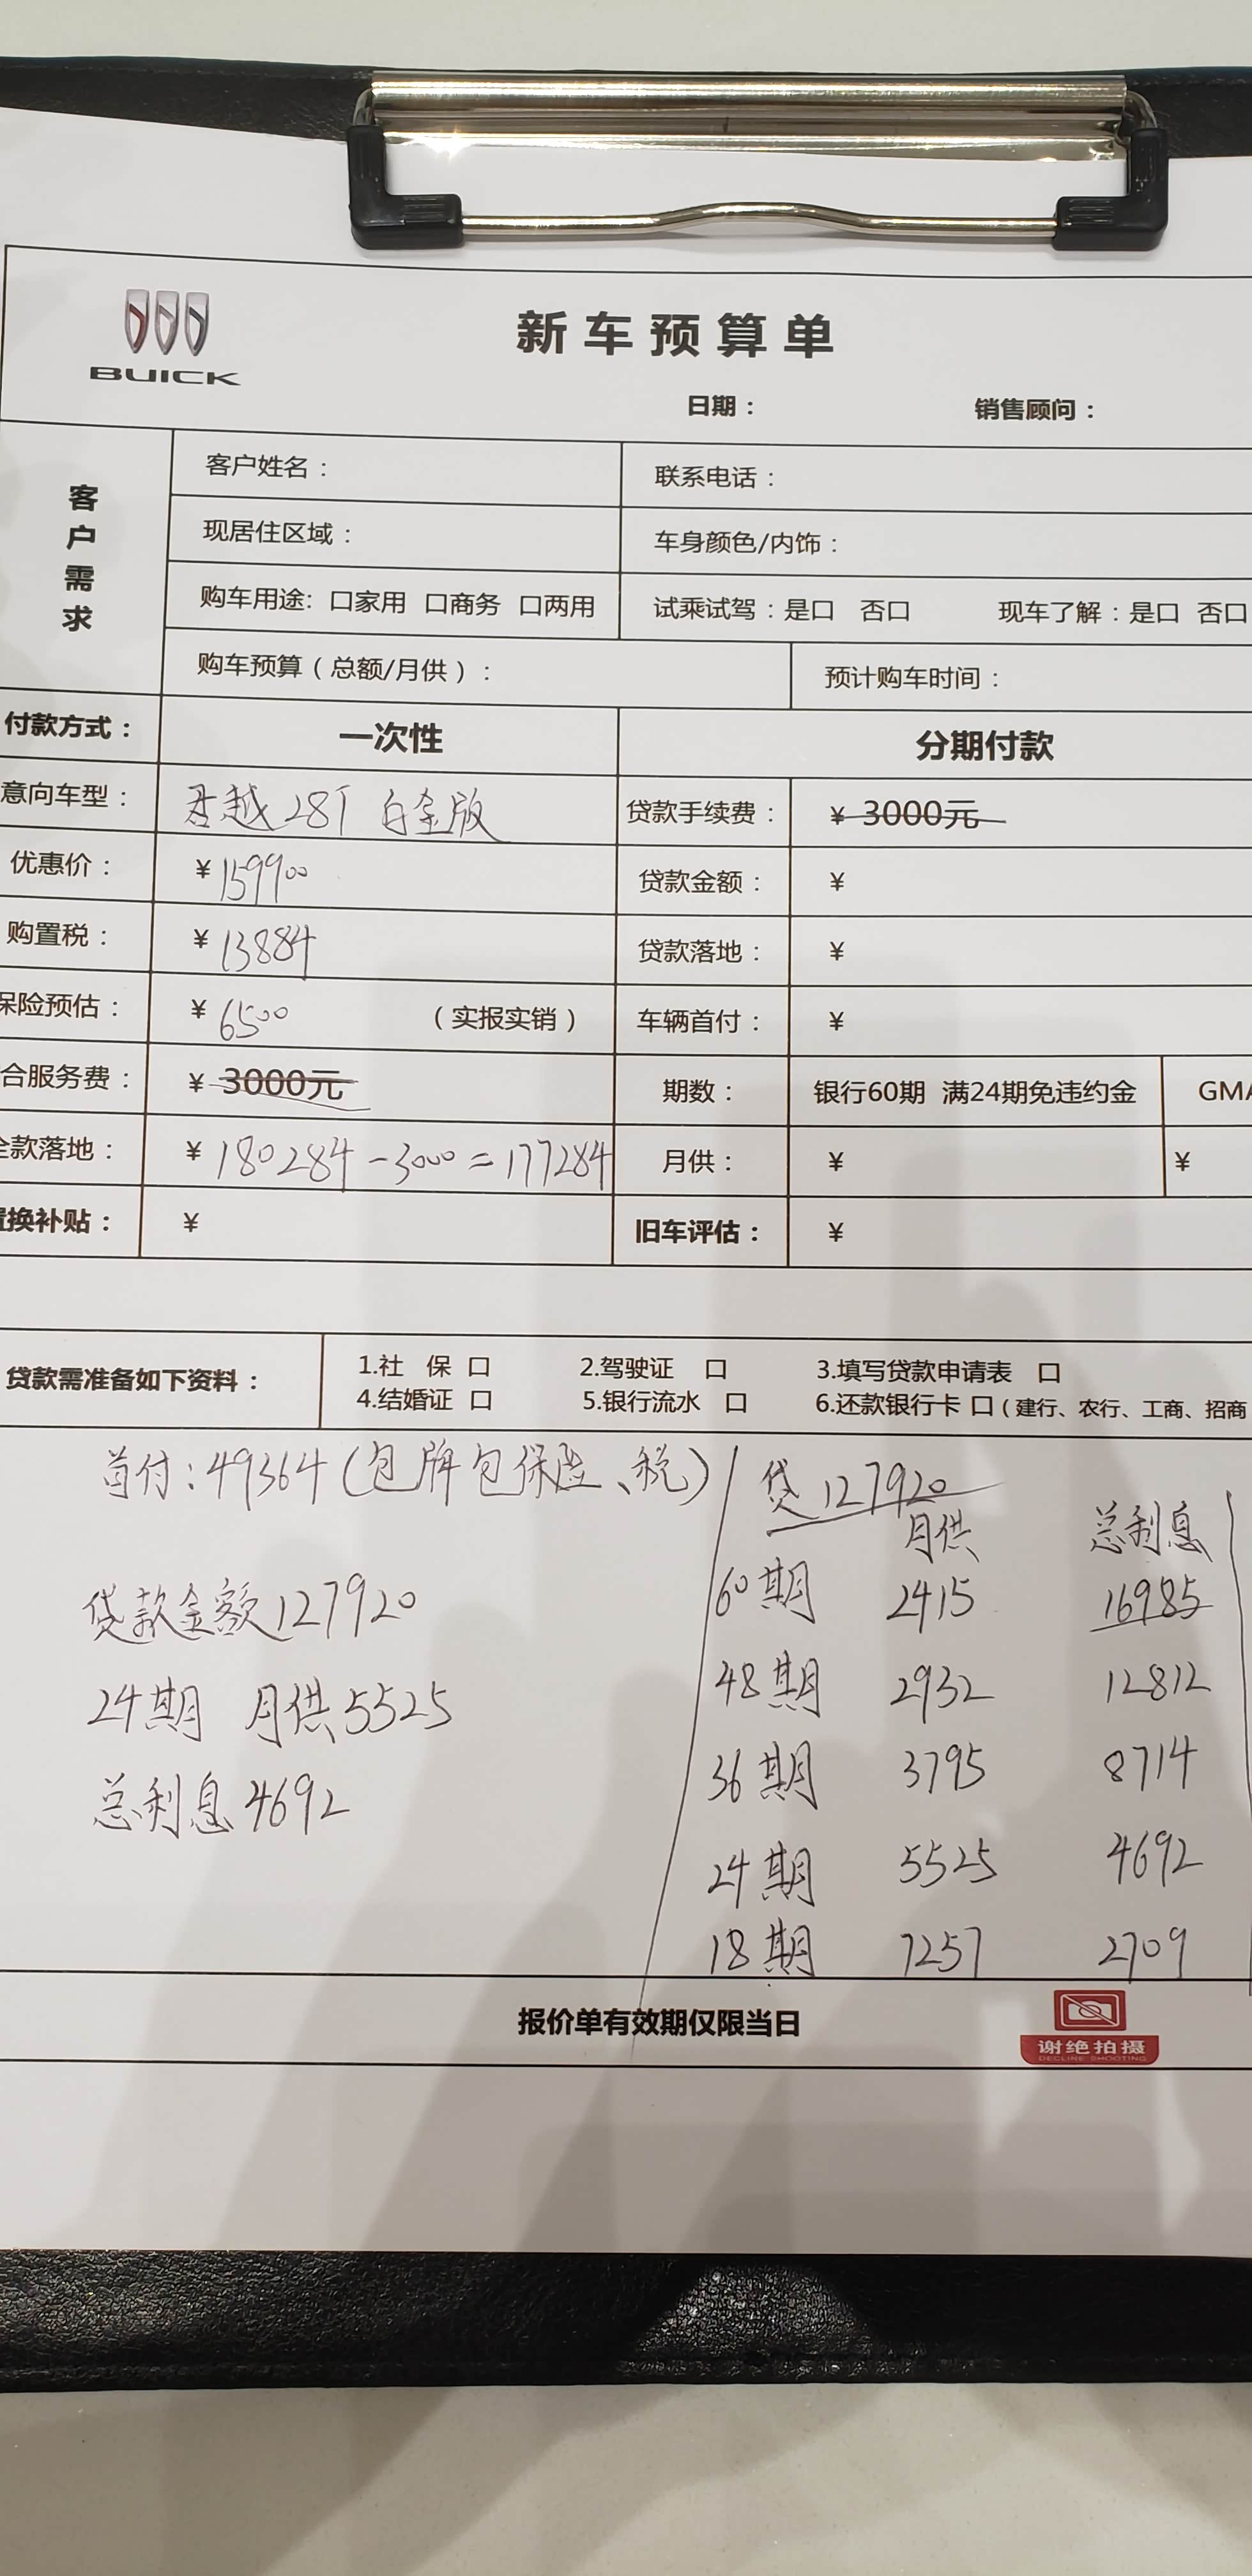 BUICK
新车预算单
日期： 销售顾问：
客户需求
客户姓名： 联系电话：
现居住区域： 车身颜色/内饰：
购车用途: 口家用 口商务 口两用 试乘试驾：是口 否口 现车了解：是口 否口
购车预算（总额/月供）： 预计购车时间：
付款方式： 一次性 分期付款
意向车型： 君越28T 白金版 贷款手续费： ¥ 3000元
优惠价： ¥ 159900 贷款金额： ¥
购置税： ¥ 13884 贷款落地： ¥
保险预估： ¥ 6500 （实报实销） 车辆首付： ¥
合服务费： ¥ 3000元 期数： 银行60期 满24期免违约金 GMA
全款落地： ¥ 180284-3000=177284 月供： ¥ ¥
置换补贴： ¥ 旧车评估： ¥
贷款需准备如下资料：
1.社 保 口 2.驾驶证 口 3.填写贷款申请表 口
4.结婚证 口 5.银行流水 口 6.还款银行卡 口（建行、农行、工商、招商
首付：49364（包牌包保险、税）
贷款金额127920
24期 月供5525
总利息4692
贷127920
月供 总利息
60期 2415 16985
48期 2932 12812
36期 3795 8714
24期 5525 4692
18期 7257 2709
报价单有效期仅限当日
谢绝拍摄
DECLINE SHOOTING